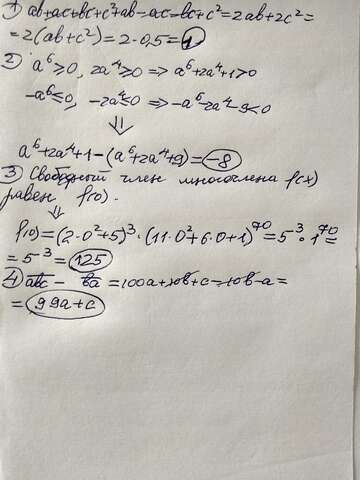 1) ab+ac+bc+c²+ab-ac-bc+c²=2ab+2c²=
=2(ab+c²)=2·0,5=1
2) a⁶⩾0, 2a⁴⩾0 => a⁶+2a⁴+1>0
-a⁶⩽0, -2a⁴⩽0 => -a⁶-2a⁴-9<0
⇓
a⁶+2a⁴+1-(a⁶+2a⁴+9)=-8
3) Свободный член многочлена f(x)
равен f(0).
⇓
f(0)=(2·0²+5)³·(11·0²+6·0+1)⁷⁰=5³·1⁷⁰=
=5³=125
4) abc - ba=100a+10b+c-10b-a=
=99a+c